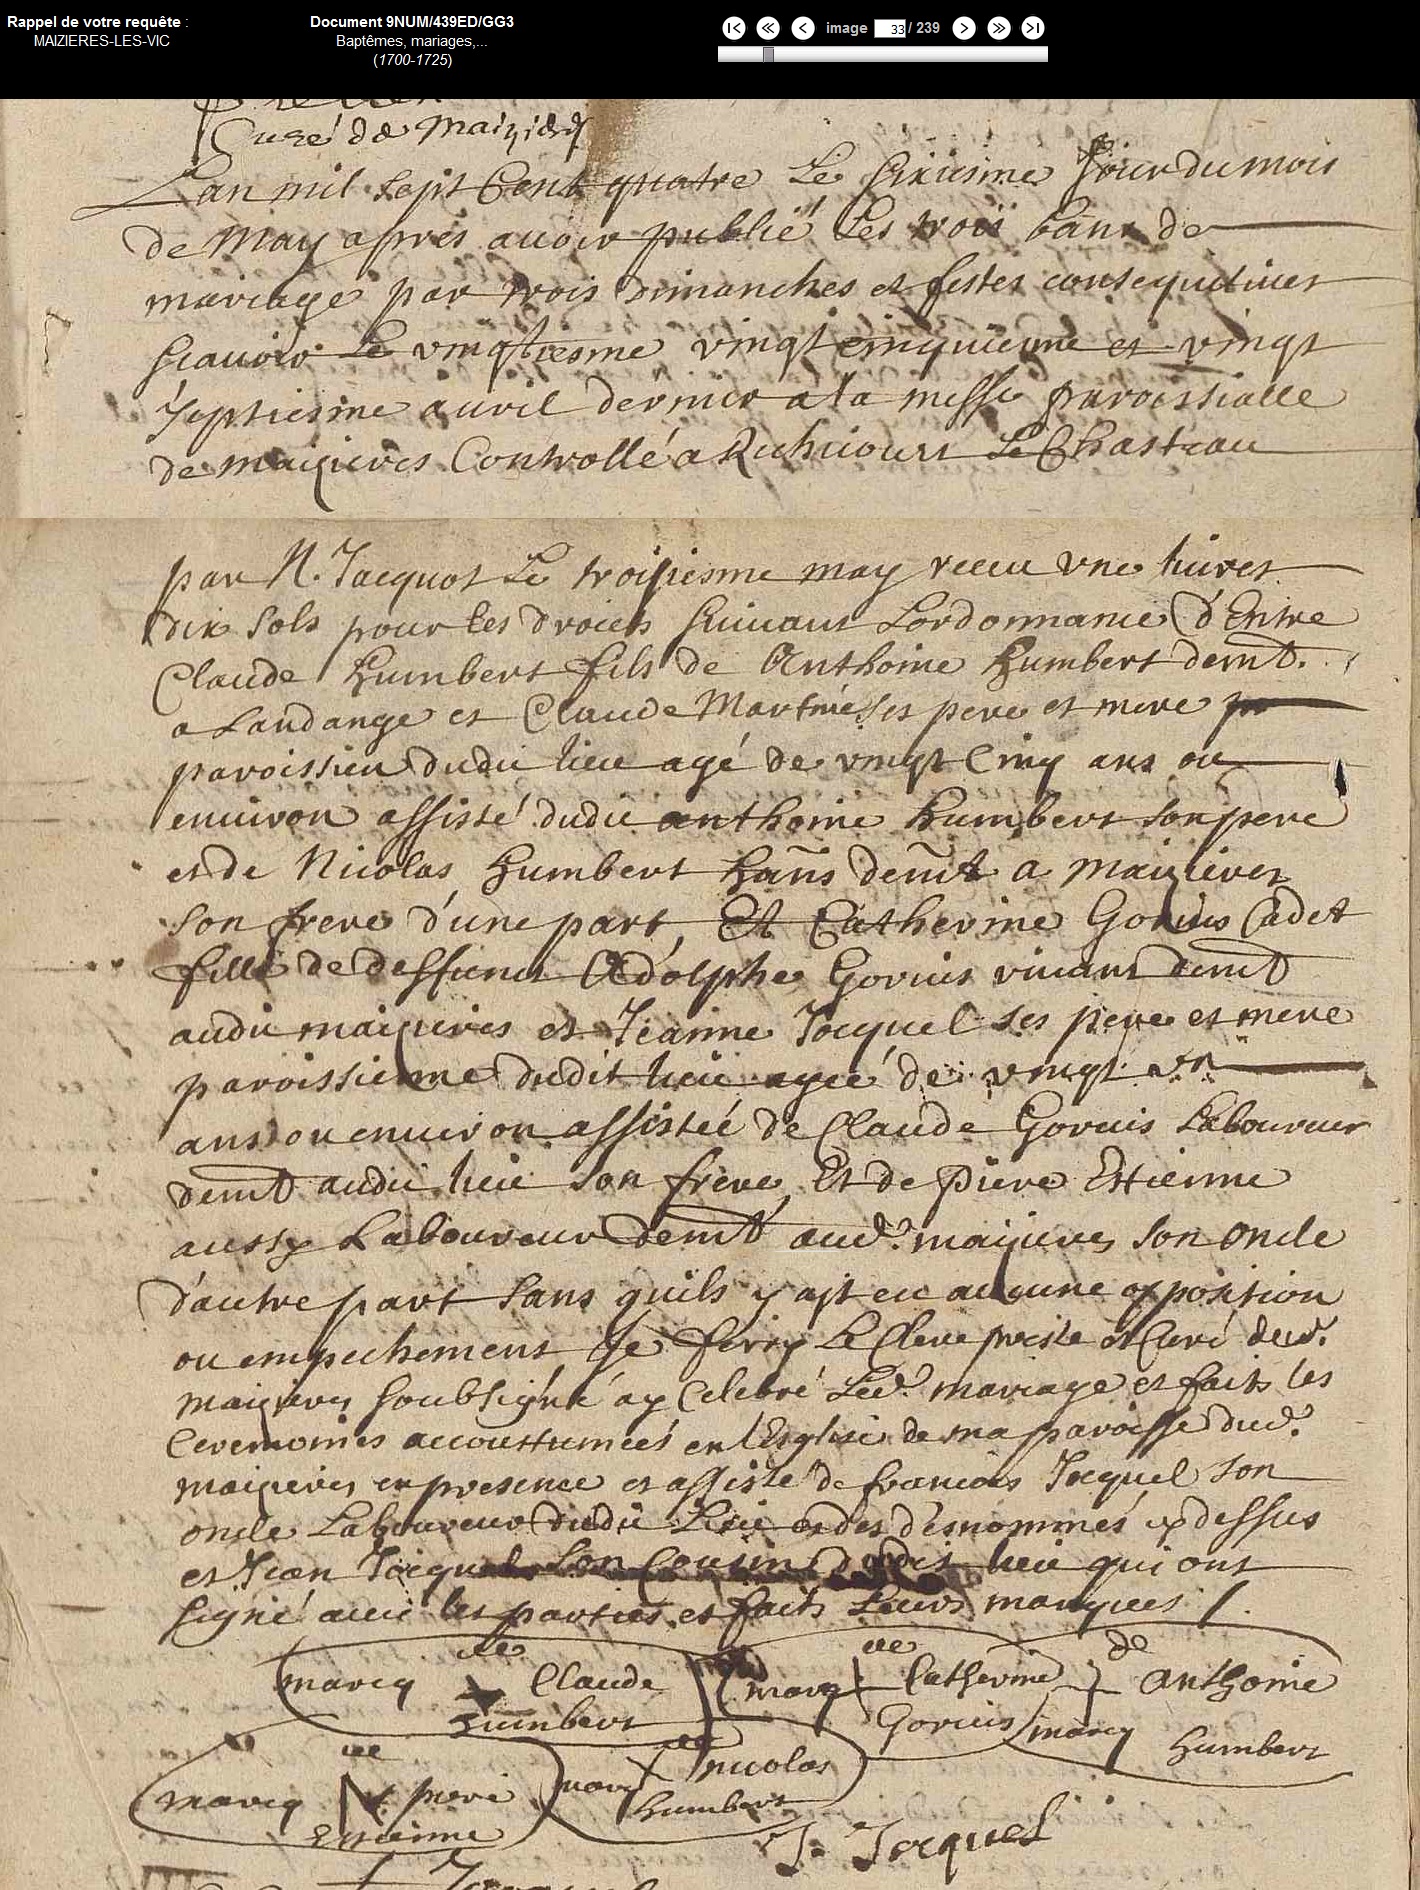 Rappel de votre requête :
MAIZIERES-LES-VIC
Document 9NUM/439ED/GG3
Baptêmes, mariages,...
(1700-1725)
image 33 / 239
Curé de Maizieres
Lan mil sept Cent quatre Le sixiesme jour du mois
de May apres avoir publié Les trois bans de
mariage par trois dimanches et festes consequtives
scavoir Le vingtiesme vingt cinquieme et vingt
septiesme avril dernier a la messe paroissialle
de maizieres Controllé a Richicourt Le Chasteau
par N. Jacquot Le troisiesme may receu vne livres
dix sols pour les droicts suivant Lordonnance d'Entre
Claude humbert fils de Anthoine humbert demt.
a Landange et Claude Martin ses pere et mere
paroissien dudit lieu agé de vingt Cinq ans ou
environ assisté dudit anthoine humbert son pere
et de Nicolas humbert demt a maizieres
son frere d'une part, Et Catherine Gorius Cadet
fille de deffunct Adolphe Gorius vivant demt
audit maizieres et Jeanne Jocquel ses pere et mere
paroissienne dudit lieu agée de vingt vn
ans ou environ assistée de Claude Gorius Laboureur
demt audit lieu son frere Et de piere Ettienne
aussy Laboureur demt aud. maizieres son oncle
d'autre part sans quils y ajt eu aucune opposition
ou empechement Je ferry Le Clerc prestre et Curé dud.
maizieres soubsigné ay Celebré Led. mariage et faits les
Ceremonies accouttumeés en l'Esglise de ma paroisse dud.
maizieres en presence et assisté de francois Jocquel son
oncle Laboureur dudit Lieu et des desnommés cy dessus
et Jean Jocquel son Cousin dudit lieu qui ont
signé avec les parties et faits Leurs marques /.
marcq de Claude
humbert
marcq de Catherine
Gorius
marcq de anthoine
humbert
marcq de piere
Ettienne
marcq de nicolas
humbert
J. Jocquel